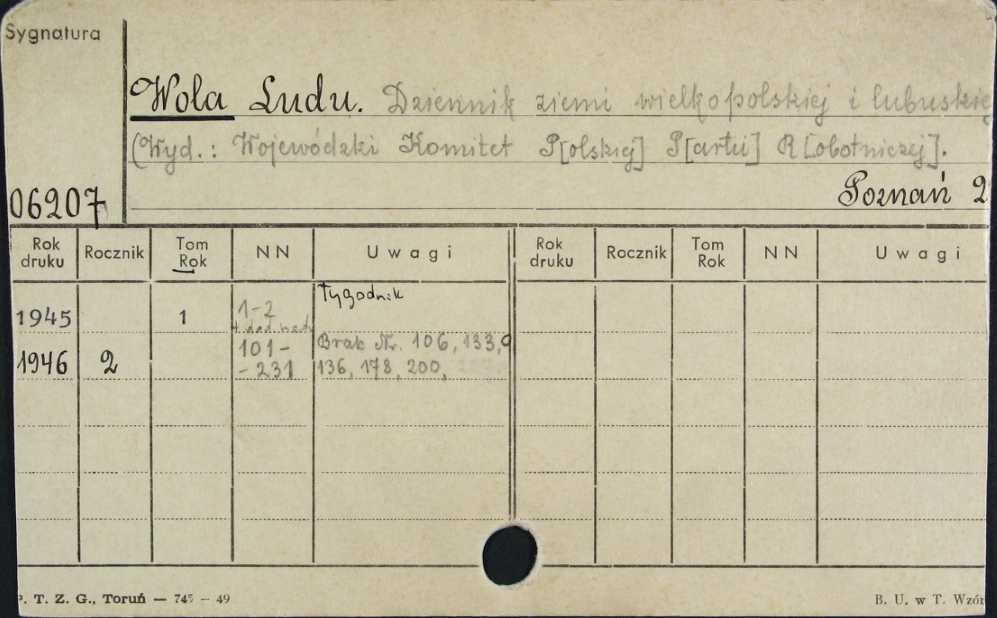 Sygnatura
Wola Ludu. Dziennik ziemi wielkopolskiej i lubuskie
(Wyd.: Wojewódzki Komitet P[olskiej] P[artii] R[obotniczej].
06207 Poznań 2
Rok druku Rocznik Tom Rok NN Uwagi Rok druku Rocznik Tom Rok NN Uwagi
Tygodnik
1945 1 1-2
+ dod. nadz
1946 2 101- Brak Nr. 106, 133,
-231 136, 178, 200,
P. T. Z. G., Toruń — 745 — 49 B. U. w T. Wzór